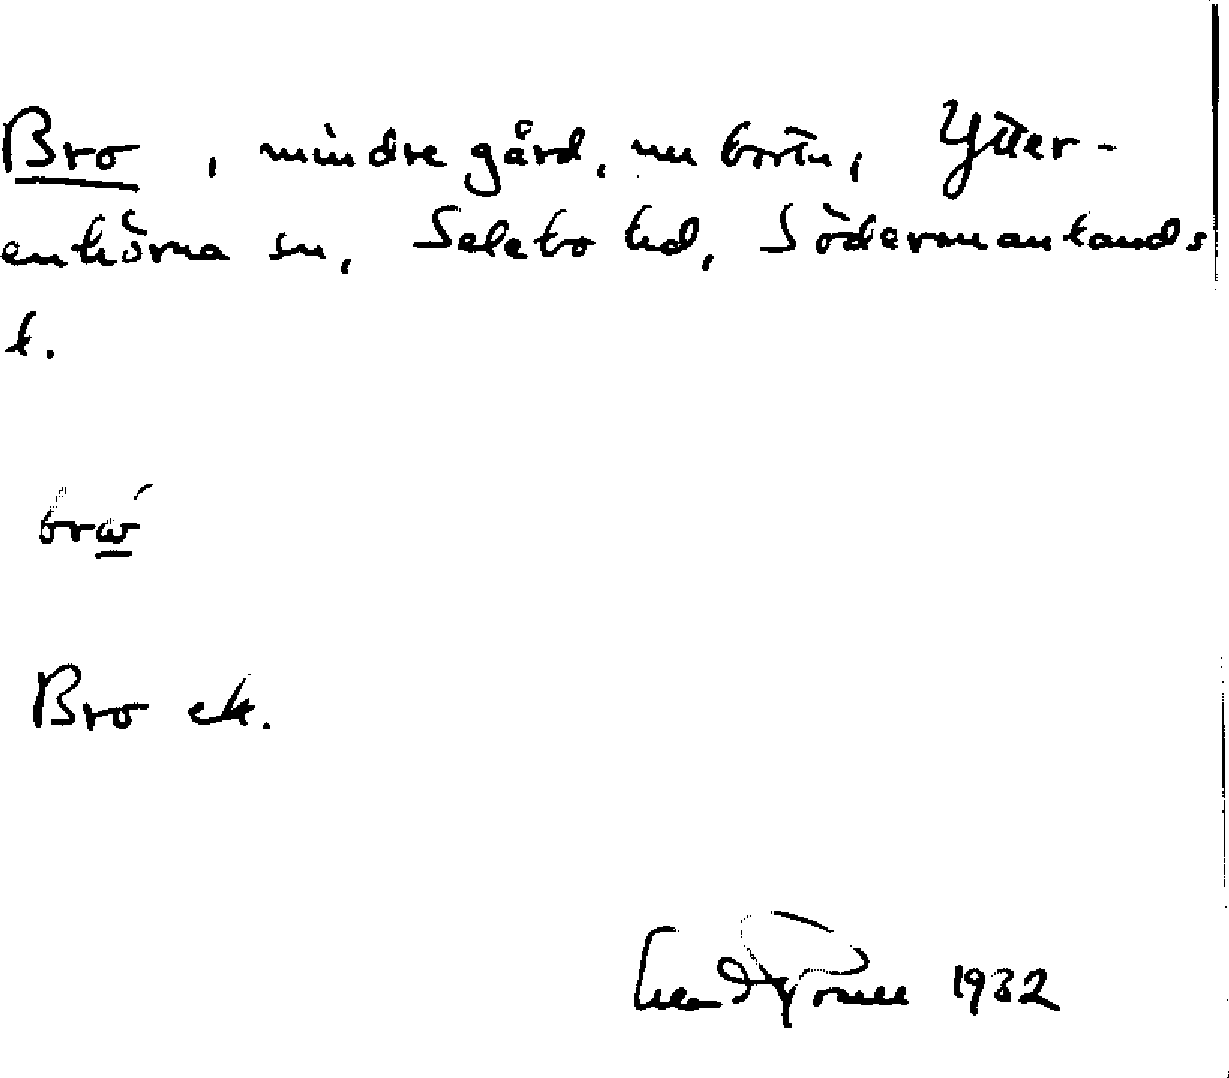 Bro, mindre gård, nu borta, Ytter-
enhörna sn, Selebo hd, Södermanlands
l.
brω´
Bro ek.
1932